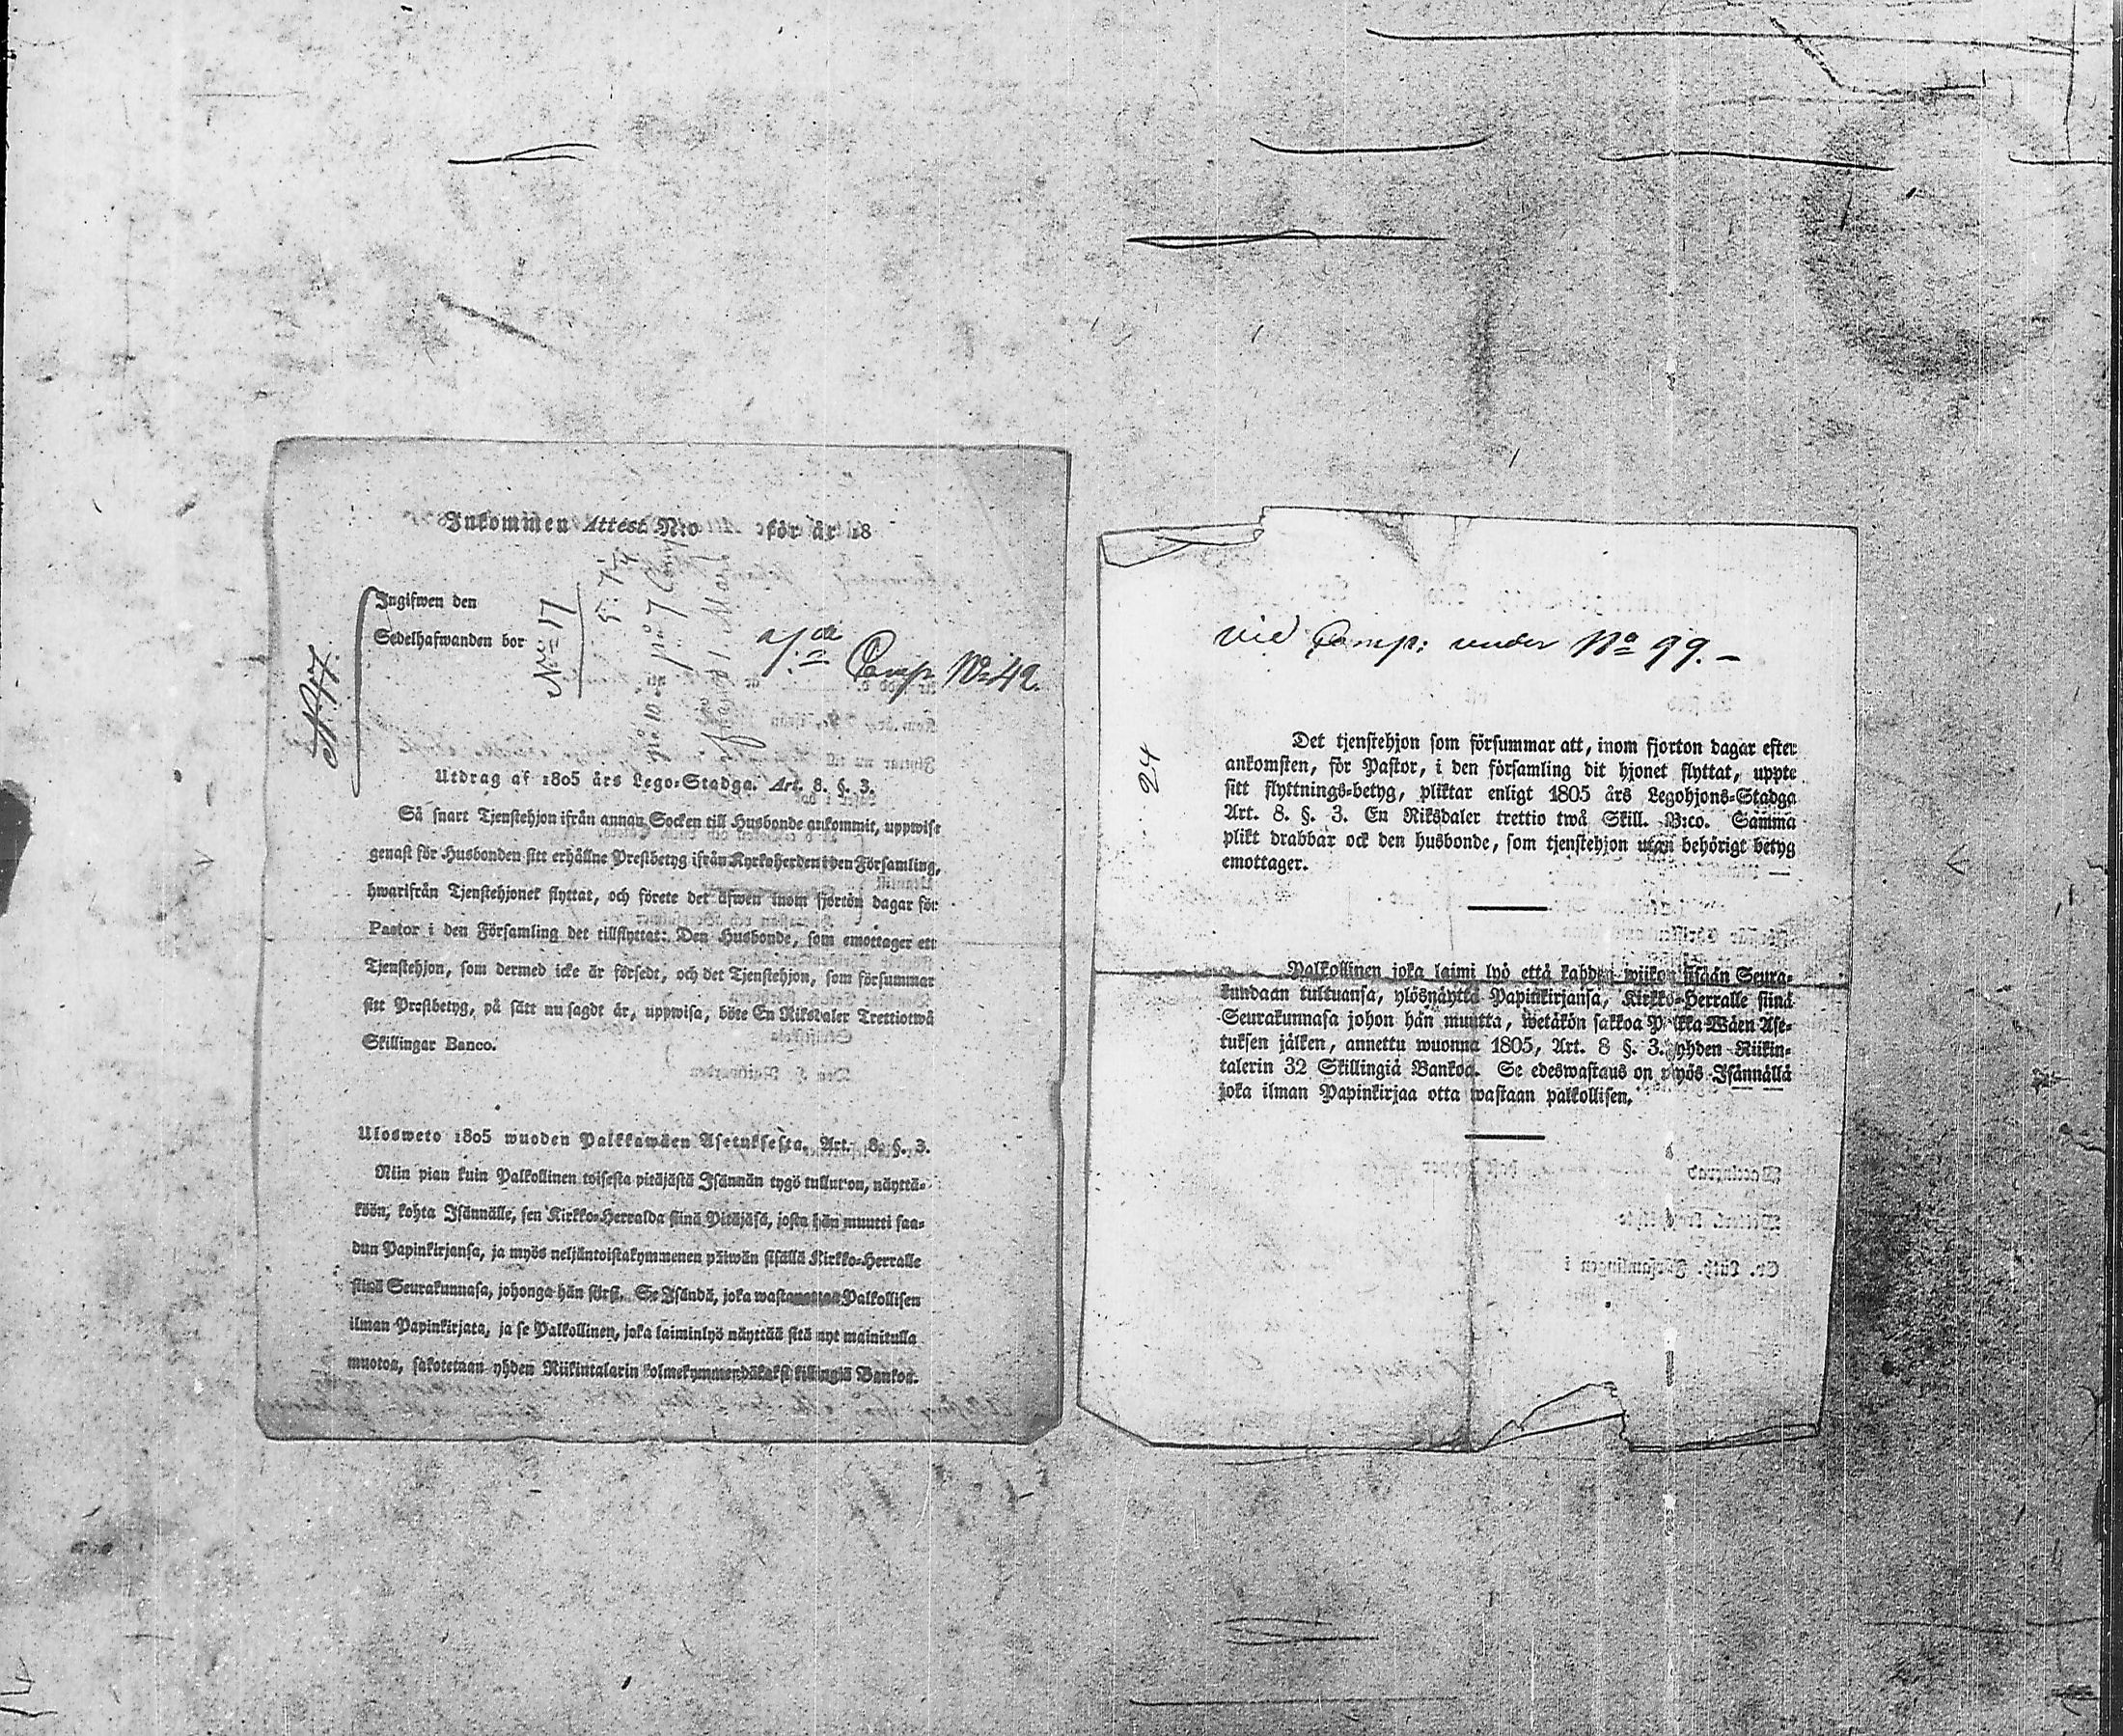 Inkommen Attest N:o för år 18
Ingifwen den
Sedelhafwanden bor
No 17
Comp. No 42.
Utdrag af 1805 års Lego=Stadga. Art. 8. §. 3.
Så snart Tjenstehjon ifrån annan Socken till Husbonde ankommit, uppwise
genast för Husbonden sitt erhållne Prestbetyg ifrån Kyrkoherden i den Församling,
hwarifrån Tjenstehjonet flyttat, och förete det äfwen inom fjorton dagar för
Pastor i den Församling det tillflyttat: Den Husbonde, som emottager ett
Tjenstehjon, som dermed icke är försedt, och det Tjenstehjon, som försummar
sitt Prestbetyg, på sätt nu sagdt är, uppwisa, böte En Riksdaler Trettiotwå
Skillingar Banco.
Ulosweto 1805 wuoden Palkkawäen Asetuksesta, Art. 8. §. 3.
Niin pian kuin Palkollinen toisesta pitäjästä Isännän tygö tullut on, näyttä=
köön, kohta Isännälle, sen Kirkko=Herralda siinä Pitäjäsä, josta hän muutti saa=
dun Papinkirjansa, ja myös neljäntoistakymmenen päiwän sisällä Kirkko=Herralle
siinä Seurakunnasa, johonga hän siirsi. Se Isändä, joka Palkollisen
ilman Papinkirjata, ja se Palkollinen, joka laiminlyö näyttää sitä nyt mainitulla
muotoa, sakotetaan yhden Riikintalarin kolmekymmendäkaksi killingiä Bankoa.
vid Comp: under No 99. –
24
Det tjenstehjon som försummar att, inom fjorton dagar efter
ankomsten, för Pastor, i den församling dit hjonet flyttat, uppte
sitt flyttnings=betyg, pliktar enligt 1805 års Legohjons=Stadga
Art. 8. §. 3. En Riksdaler trettio twå Skill. B:co. Samma
plikt drabbar ock den husbonde, som tjenstehjon utan behörigt betyg
emottager.
Palkollinen joka laimi lyö että kahden wiikon sisään Seura=
kundaan tultuansa, ylösnäyttä Papinkirjansa, Kirkko=Herralle siinä
Seurakunnasa johon hän muutta, wetäkön sakkoa Palkka=Wäen Ase=
tuksen jälken, annettu wuonna 1805, Art. 8 §. 3. yhden Riikin=
talerin 32 Skillingiä Bankoa. Se edeswastaus on myös Isännällä
joka ilman Papinkirjaa otta wastaan palkollisen.